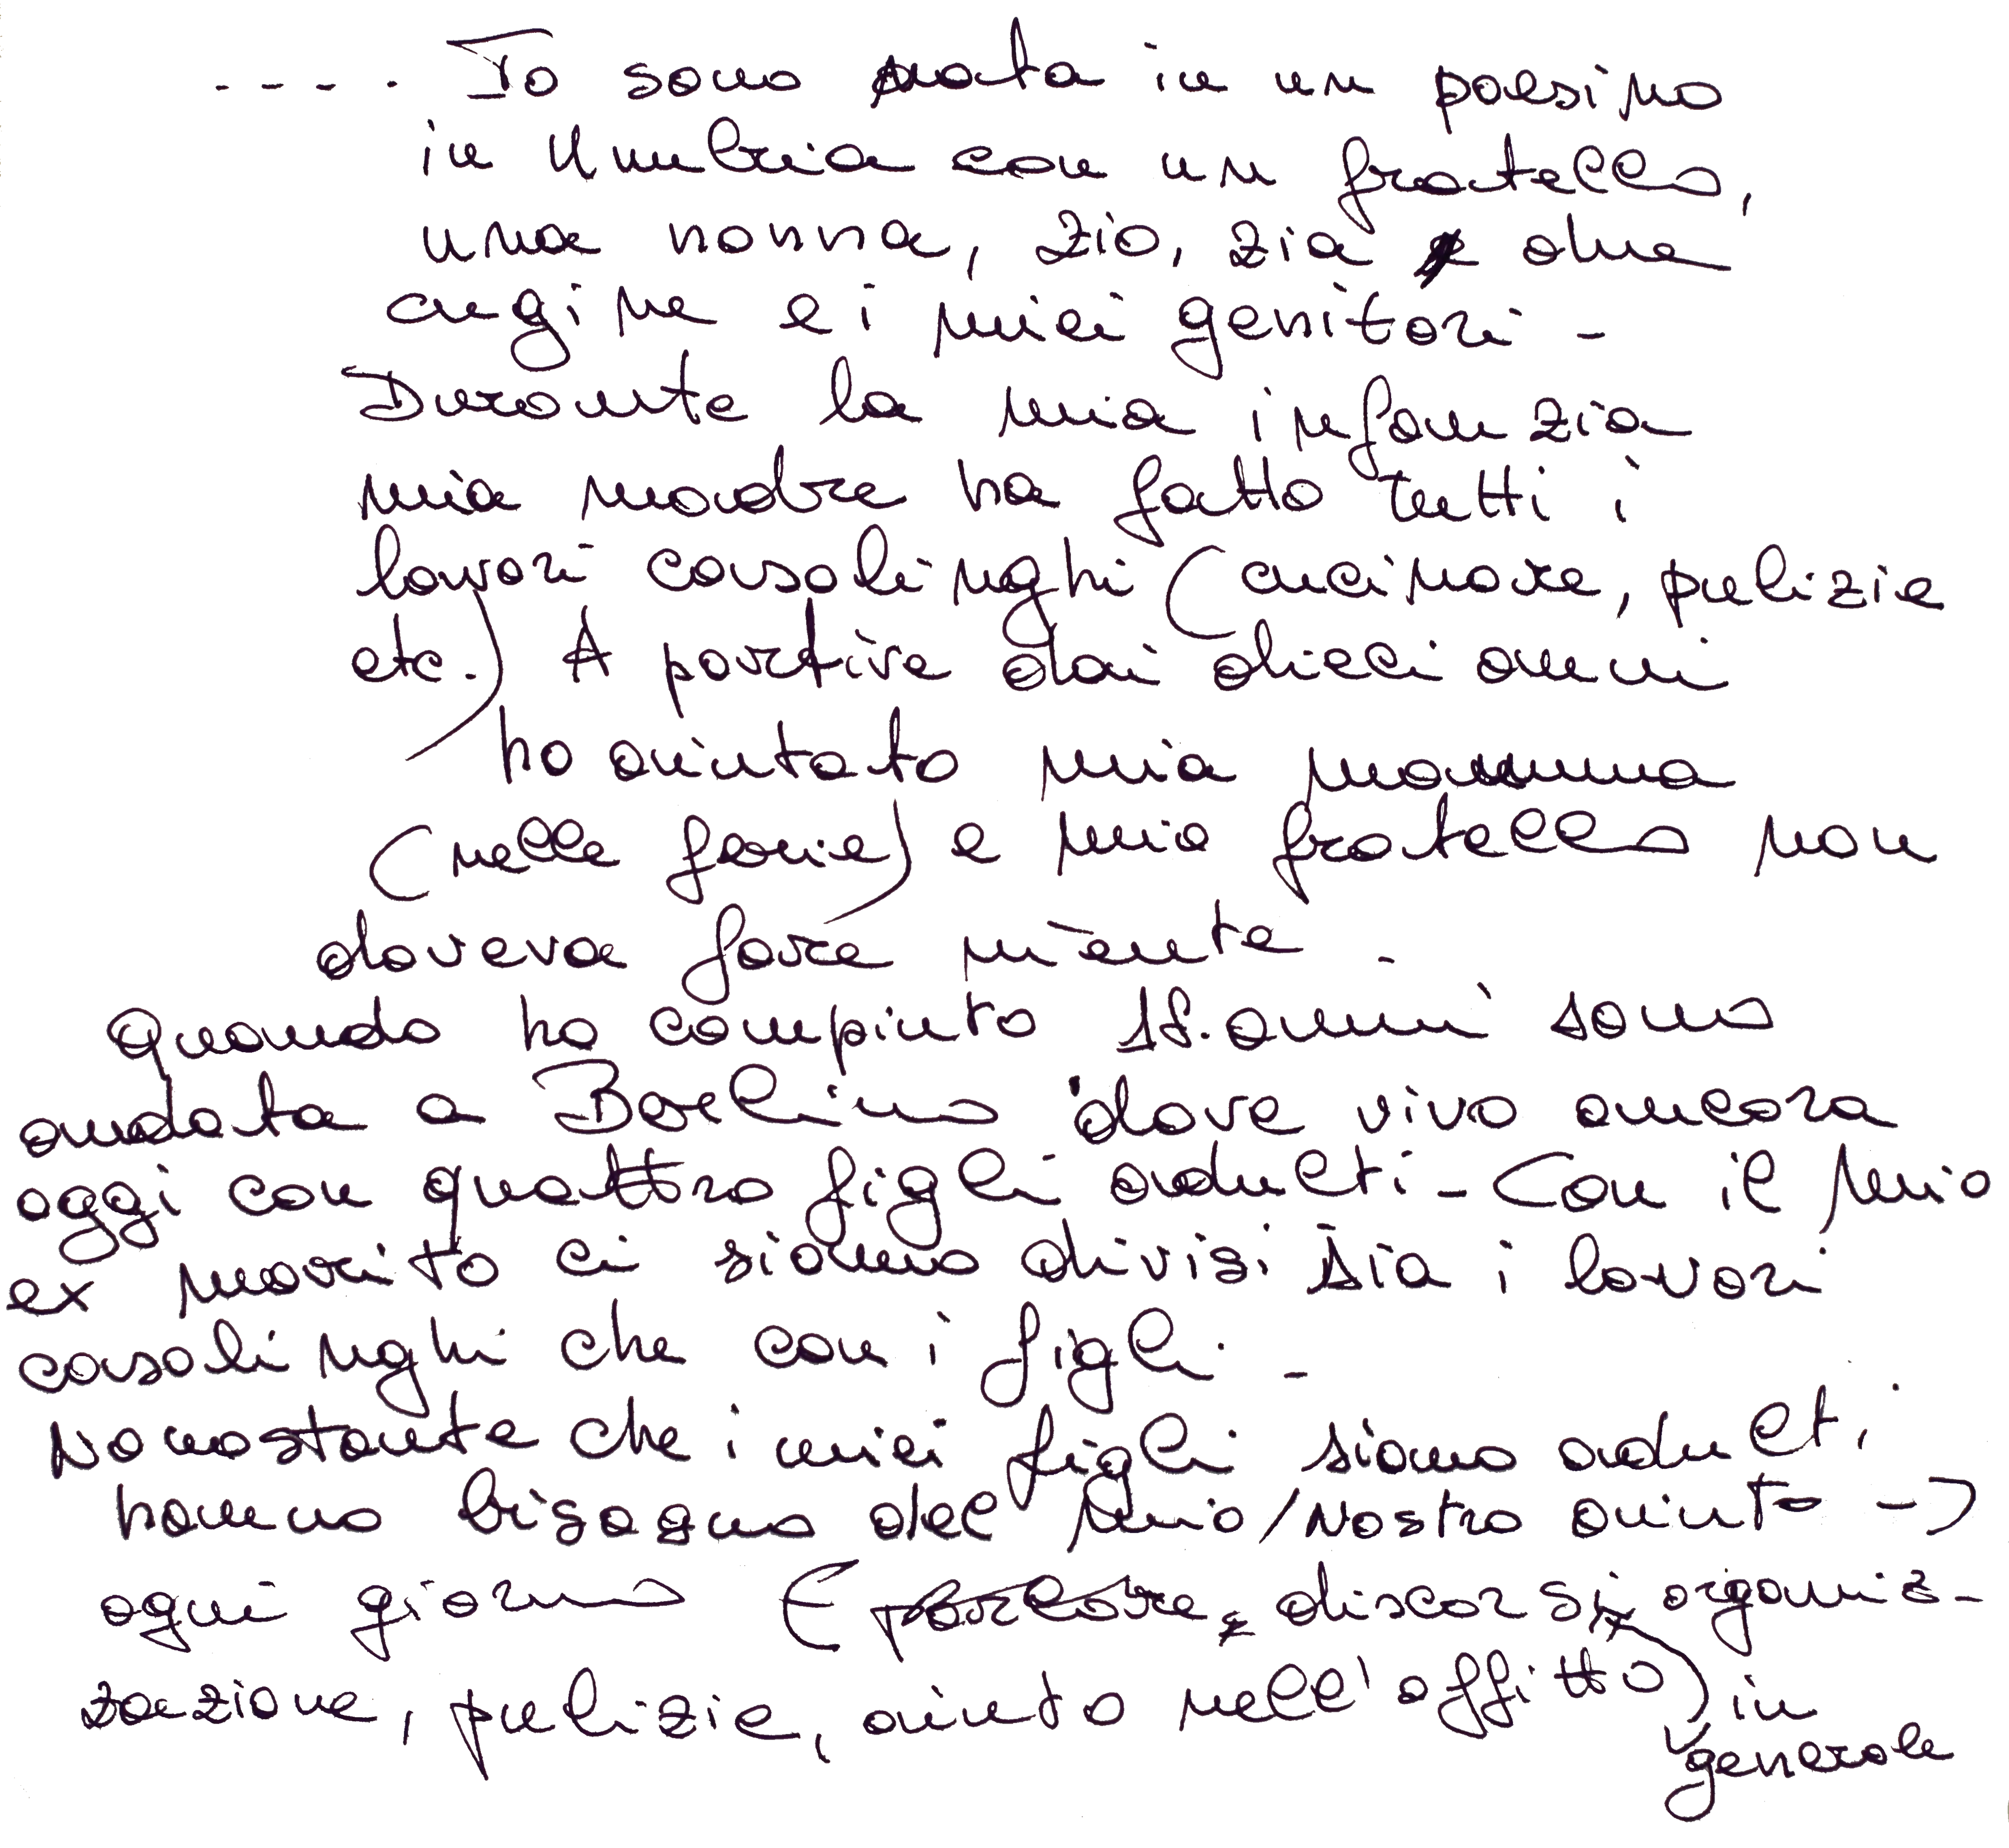 ---- . Io sono nata in un paesino
in Umbria con un fratello,
una nonna, zio, zia e due
cugine e i miei genitori -
Durante la mia infanzia
mia madre ha fatto tutti i
lavori casalinghi (cucinare, pulizie
etc.) A partire dai dieci anni
ho aiutato mia mamma
(nelle ferie) e mio fratello non
doveva fare niente -
Quando ho compiuto 18. anni sono
andata a Berlino dove vivo ancora
oggi con quattro figli adulti - Con il mio
ex marito ci siamo divisi sia i lavori
casalinghi che con i figli. -
Nonostante che i miei figli siano adulti
hanno bisogno del mio/nostro aiuto ->
ogni giorno (parlare, discorsi, organiz-
zazione, pulizie, aiuto nell'affitto) in
generale